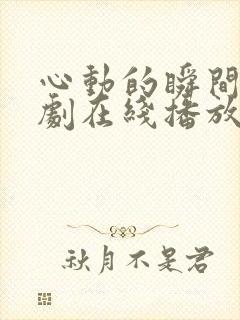 心動的瞬間
劇在綫播放
秋月不是君